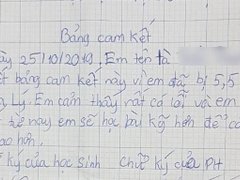 Bảng cam kết
ày 25/10/2019. Em tên là
ết bảng cam kết này vì em đã bị 5,5
Lý. Em cảm thấy rất có lỗi với em
từ nay em sẽ học bài kỹ hơn để cá
ao hơn.
ký của học sinh Chữ ký của PH